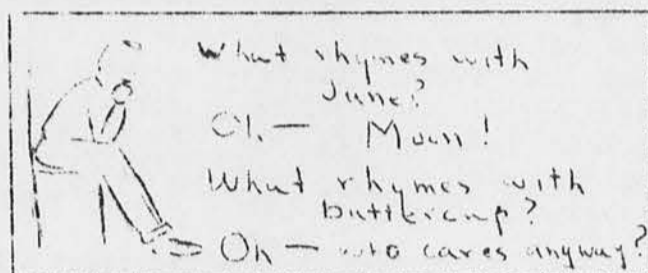 What rhymes with
June?
Oh — Moon!
What rhymes with
buttercup?
Oh — who cares anyway?